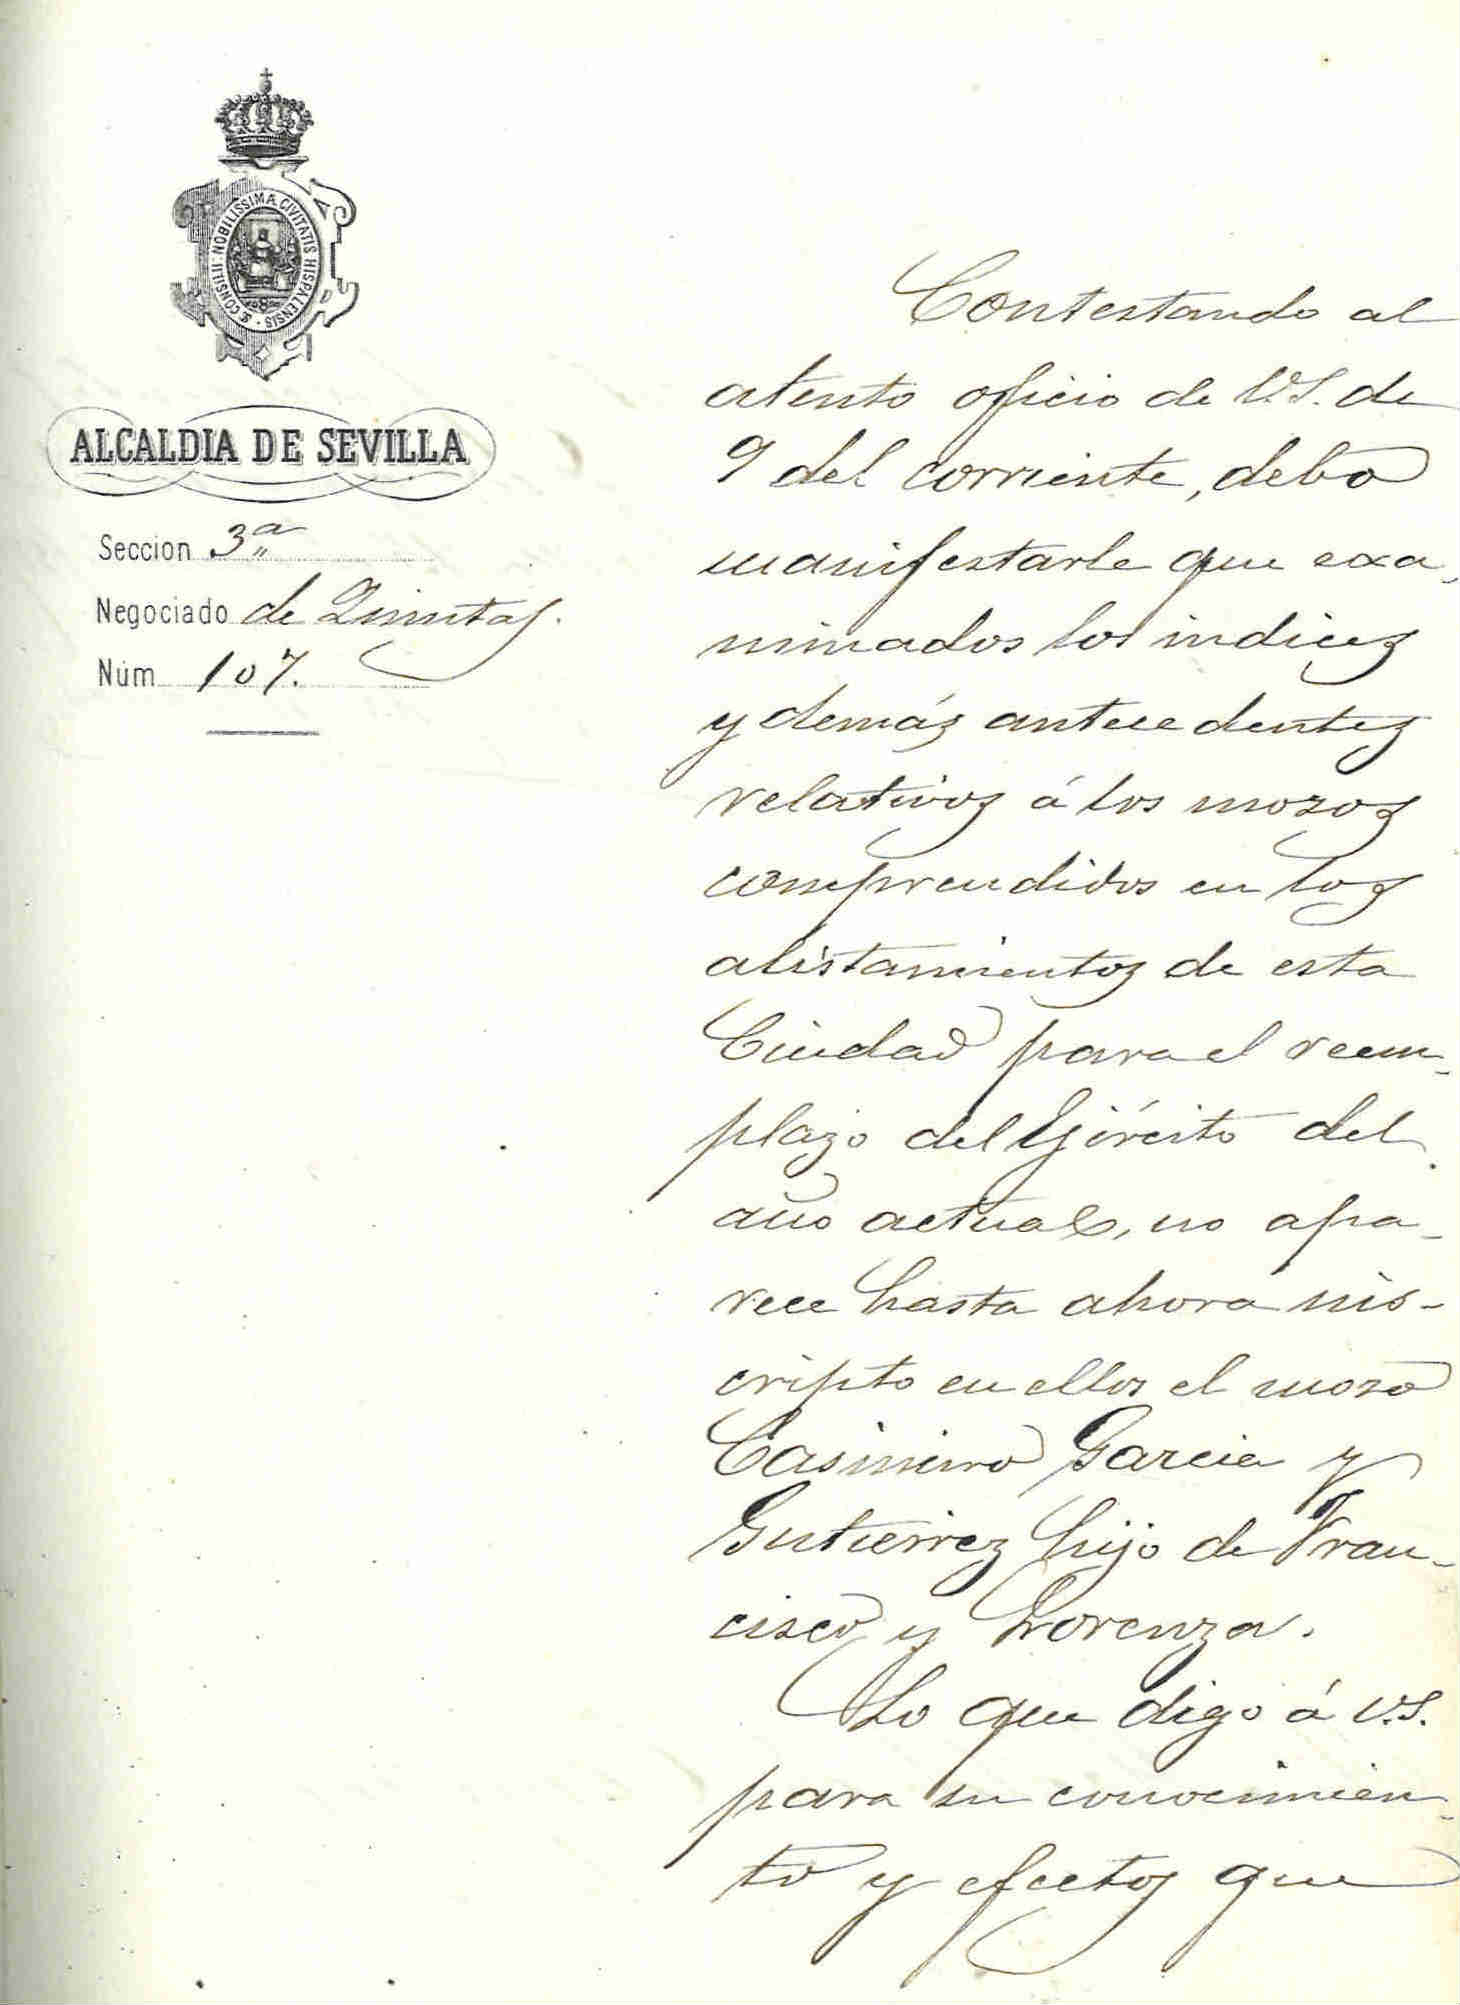 S. CONSILII NOBILISSIMÆ CIVITATIS HISPALENSIS
NO8DO
ALCALDIA DE SEVILLA
Seccion 3ª
Negociado de Quintas.
Núm 107.
Contestando al
atento oficio de V.S. de
9 del corriente, debo
manifestarle que exa-
minados los indices
y demás antecedentes
relativos á los mozos
comprendidos en los
alistamientos de esta
Ciudad para el reem-
plazo del Ejército del
año actual, no apa-
rece hasta ahora ins-
cripto en ellos el mozo
Casimiro Garcia y
Gutierrez hijo de Fran-
cisco y Lorenza.
Lo que digo á V.S.
para su conocimien-
to y efectos que